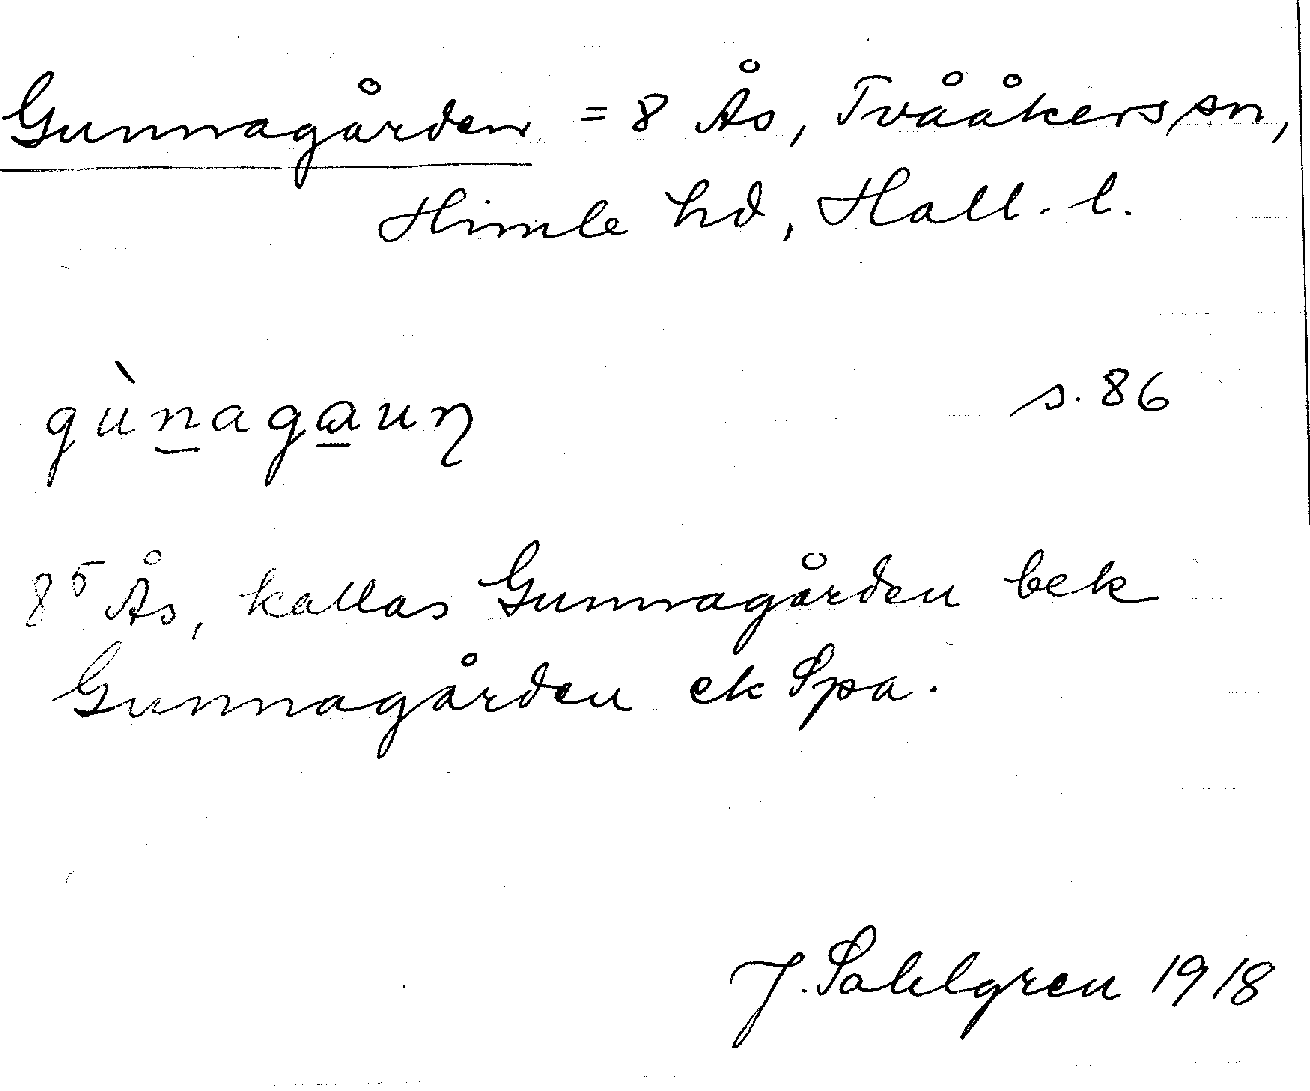 Gunnagården = 8 Ås, Tvååkers sn,
Himle hd, Hall. l.
gùn̲aga̲uη s. 86
8⁵ Ås, kallas Gunnagården bek
Gunnagården ek Spa.
J. Sahlgren 1918